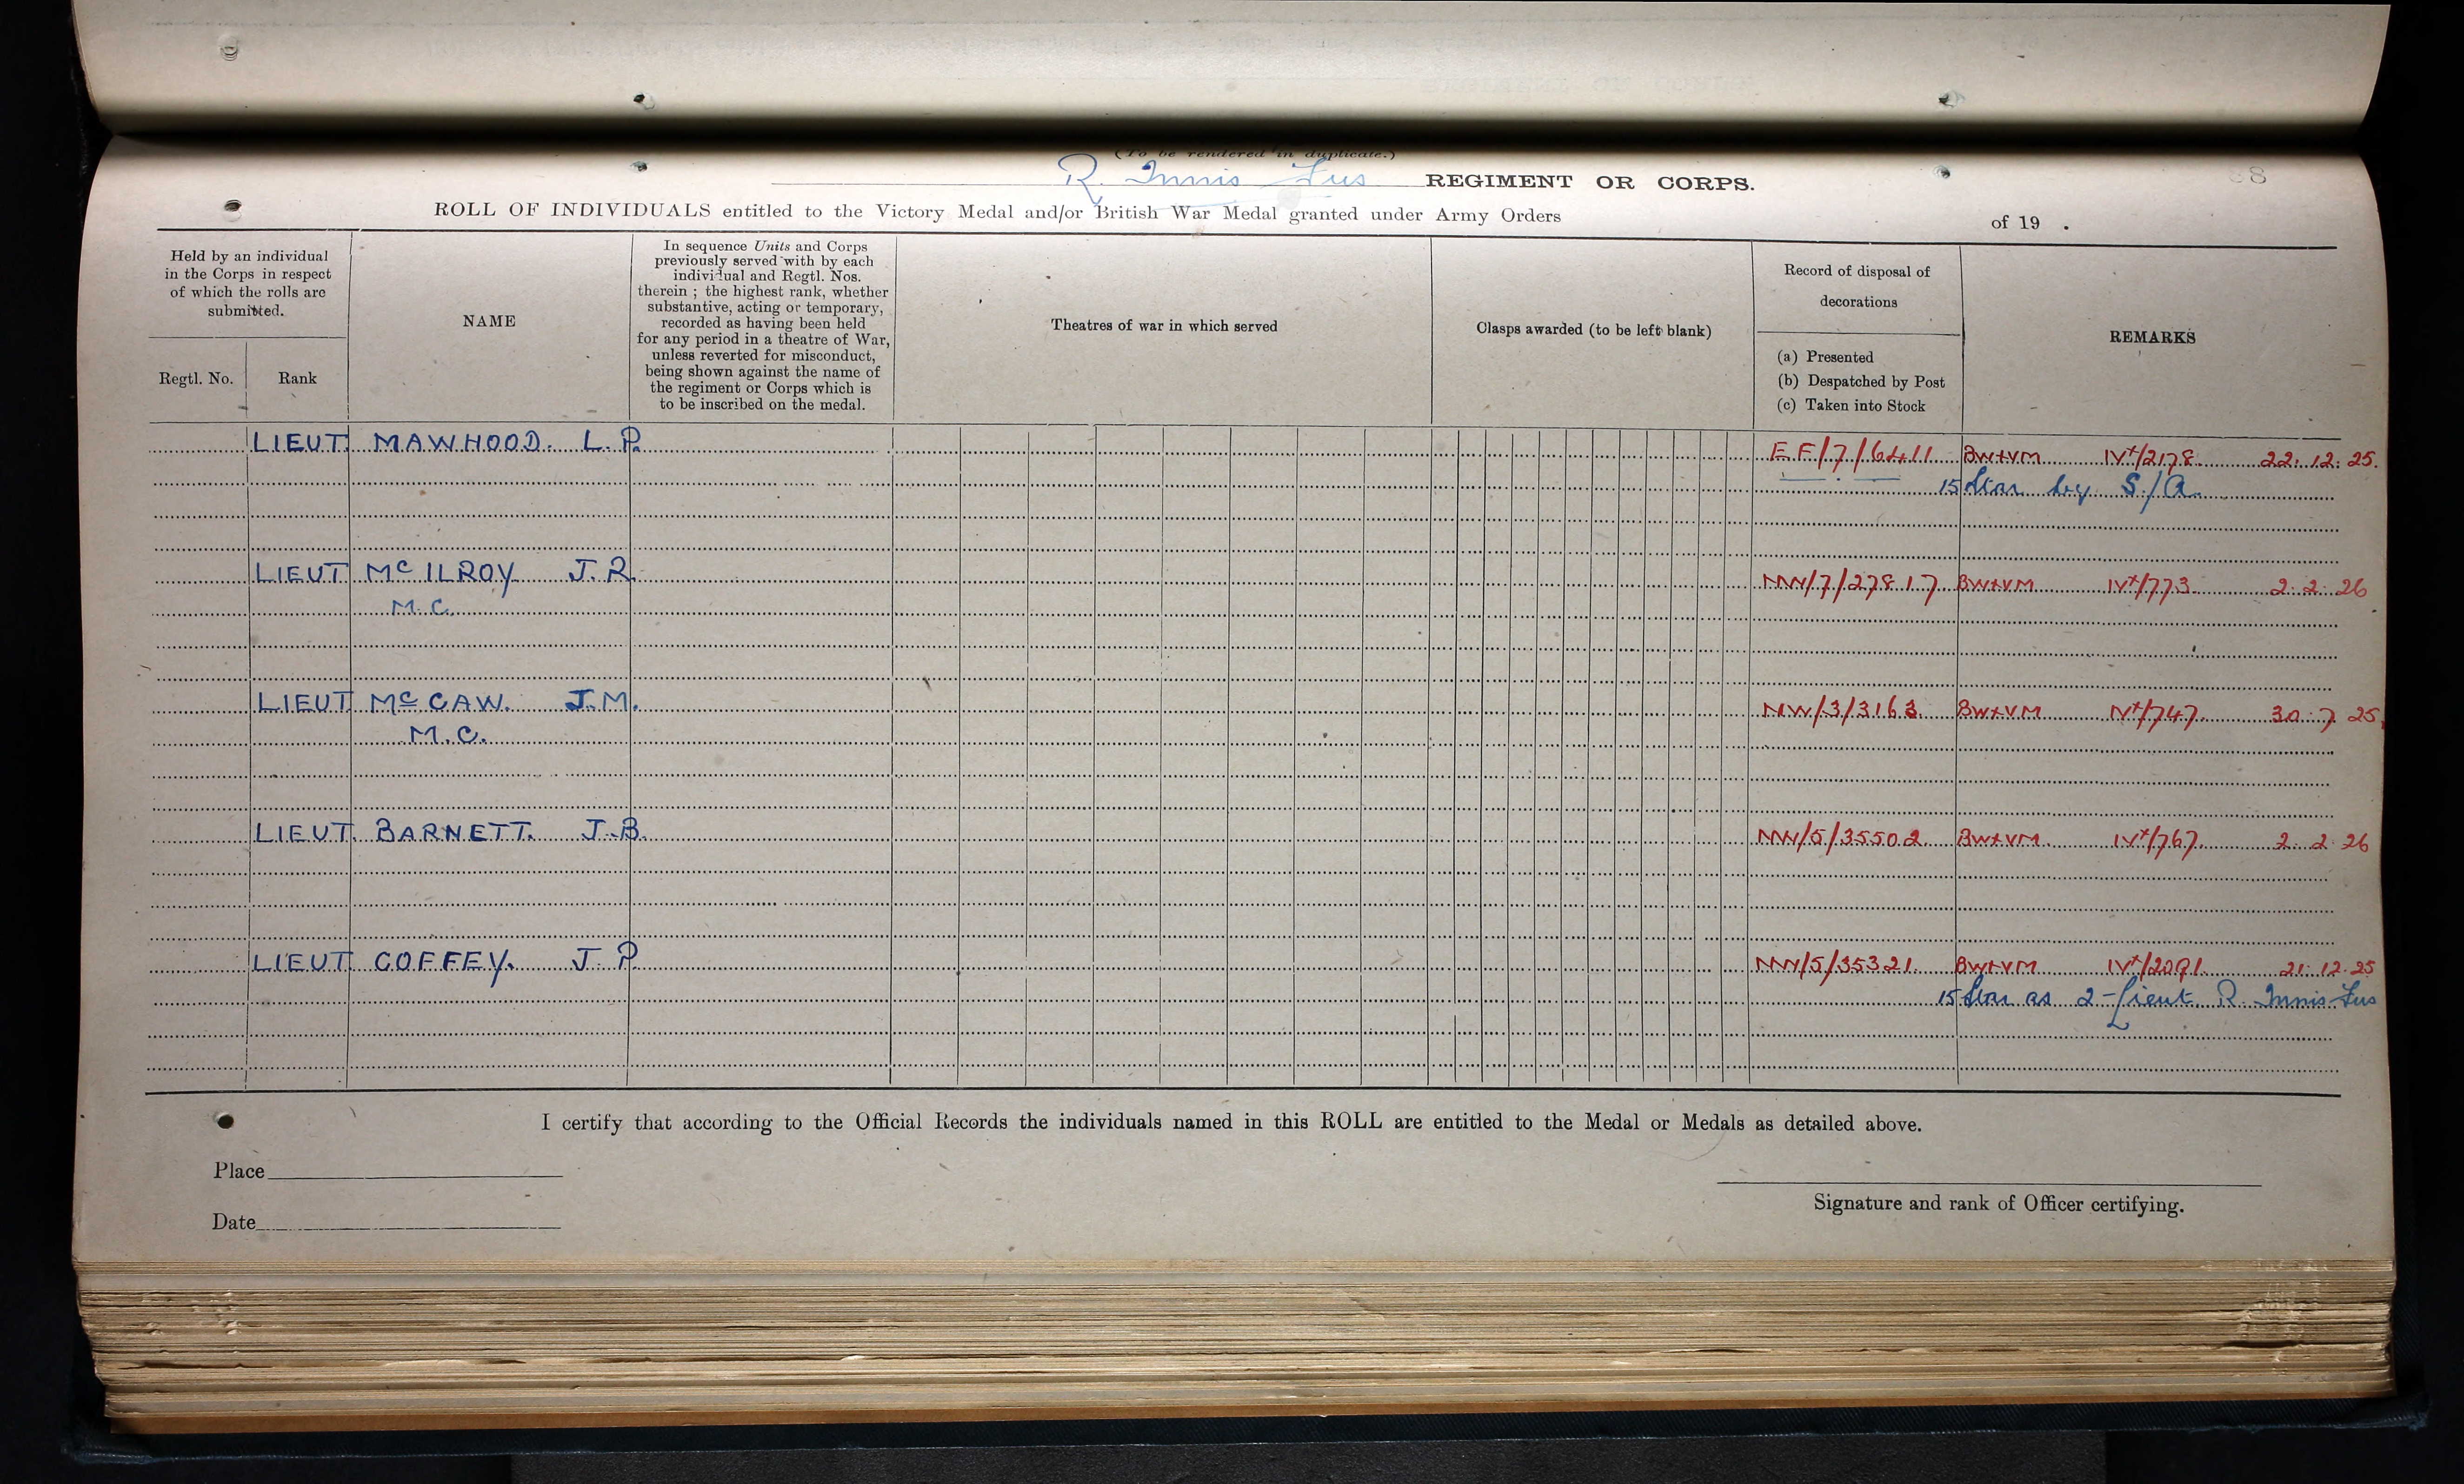 (To be rendered in duplicate.)
R. Innis Fus REGIMENT OR CORPS.
ROLL OF INDIVIDUALS entitled to the Victory Medal and/or British War Medal granted under Army Orders of 19 .
Held by an individual
in the Corps in respect
of which the rolls are
submitted.
Regtl. No.
Rank
NAME
In sequence Units and Corps
previously served with by each
individual and Regtl. Nos.
therein ; the highest rank, whether
substantive, acting or temporary,
recorded as having been held
for any period in a theatre of War,
unless reverted for misconduct,
being shown against the name of
the regiment or Corps which is
to be inscribed on the medal.
Theatres of war in which served
Clasps awarded (to be left blank)
Record of disposal of
decorations
(a) Presented
(b) Despatched by Post
(c) Taken into Stock
REMARKS
LIEUT. MAWHOOD. L. P. EF/7/6411 BW+VM IVx/2178. 22. 12. 25.
15 Star by S/A.
LIEUT Mc ILROY J. R. NW/7/27817 BW+VM IVx/773. 2. 2. 26
M.C.
LIEUT Mc CAW. J.M. NW/3/3163 BW+VM IVx/747. 30. 7. 25.
M.C.
LIEUT. BARNETT. J.B. NW/5/35502. BW+VM. IVx/767. 2. 2. 26
LIEUT COFFEY. J. P. NW/5/35321. BW+VM IVx/2091. 21. 12. 25
15 Star as 2-Lieut R. Innis Fus
I certify that according to the Official Records the individuals named in this ROLL are entitled to the Medal or Medals as detailed above.
Place
Date
Signature and rank of Officer certifying.